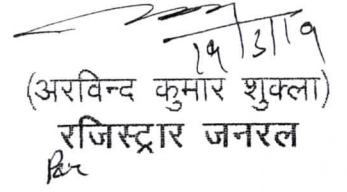 19/3/19
(अरविन्द कुमार शुक्ला)
रजिस्ट्रार जनरल